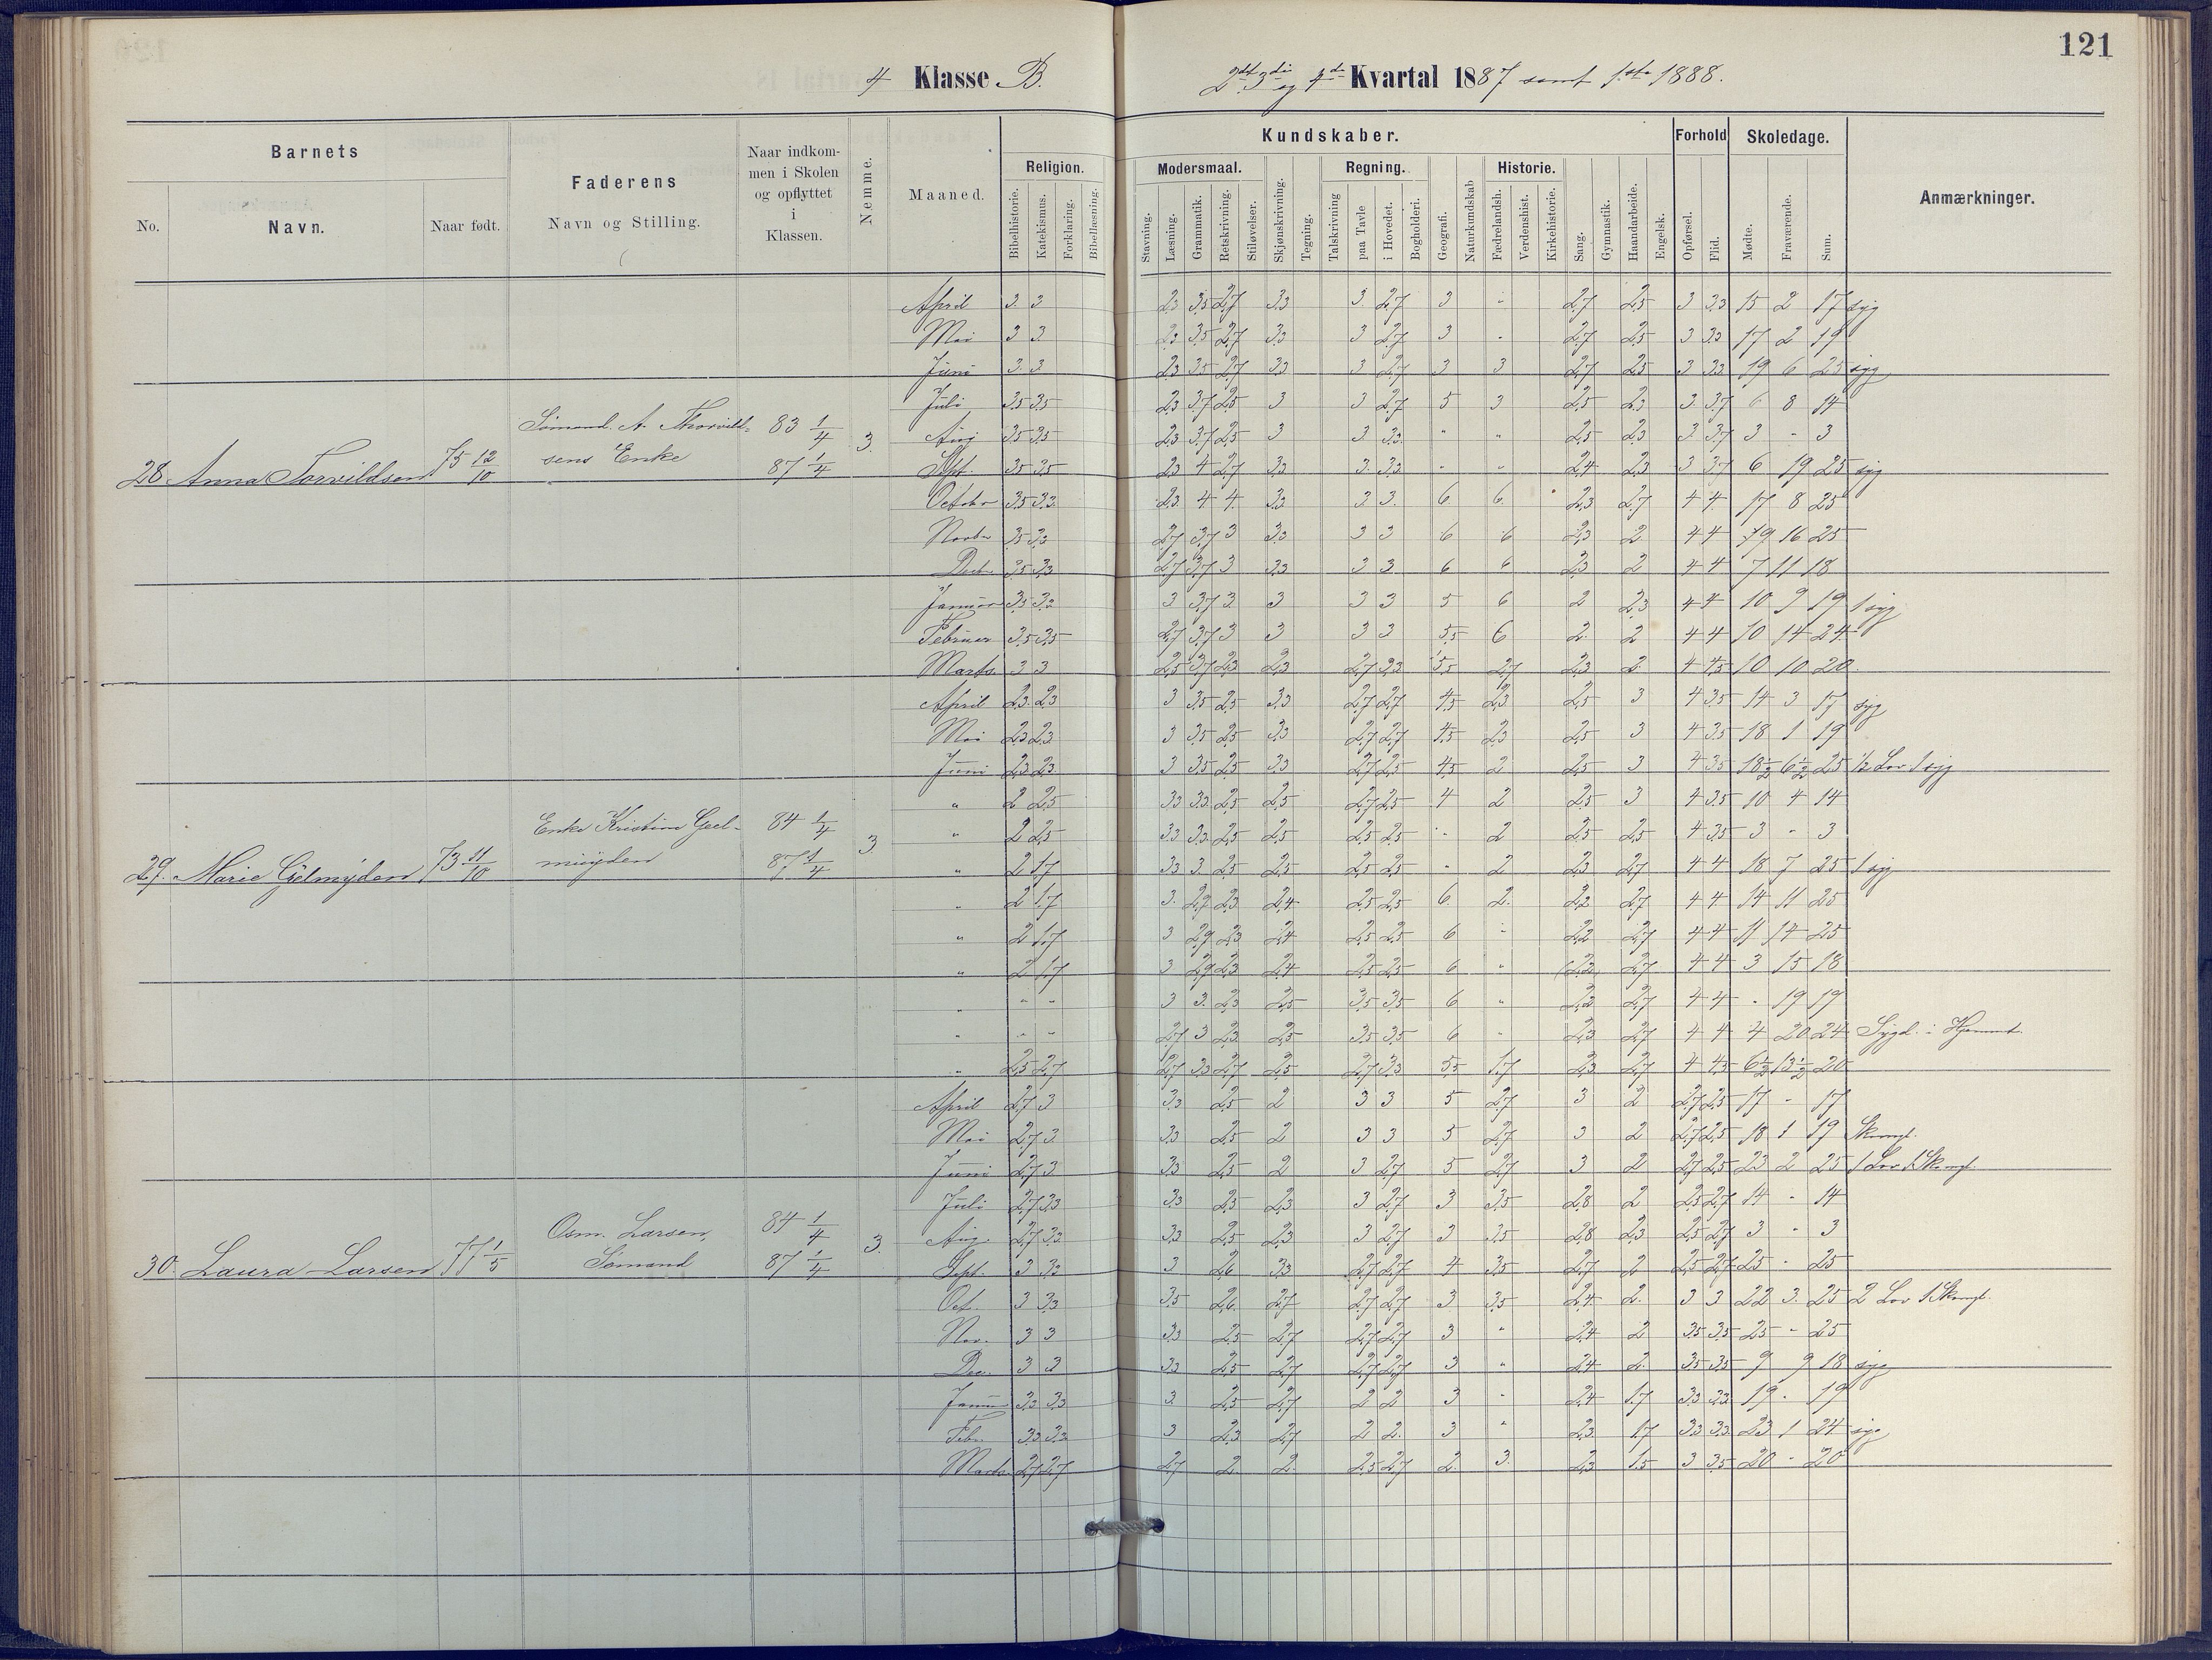 121
4 Klasse B.
2det 3die og 4de Kvartal 1887 samt 1ste 1888.
Barnets
No.
Navn.
Naar født.
Faderens
Navn og Stilling.
Naar indkom-
men i Skolen
og opflyttet
i
Klassen.
Nemme.
Maaned.
Kundskaber.
Religion.
Bibelhistorie.
Katekismus.
Forklaring.
Bibellæsning.
Modersmaal.
Stavning.
Læsning.
Grammatik.
Retskrivning.
Stiløvelser.
Skjønskrivning.
Tegning.
Regning.
Talskrivning
paa Tavle
i Hovedet.
Bogholderi.
Geografi.
Naturkundskab
Historie.
Fædrelandsh.
Verdenshist.
Kirkehistorie.
Sang.
Gymnastik.
Haandarbeide.
Engelsk.
Forhold
Opførsel.
Flid.
Skoledage.
Mødte.
Fraværende.
Sum.
Anmærkninger.
April 3. 3 2,3 3,5 2,7 3,3 3 2,7 3 - 2,7 2,5 3 3,3 15 2 17 syg
Mai 3 3 2,3 3,5 2,7 3,3 3 2,7 3 - 2,7 2,5 3 3,3 17 2 19
Juni 3. 3 2,3 3,5 2,7 3,3 3 2,7 3 3 2,7 2,5 3 3,3 19 6 25 syg
Juli 3,5 3,5 2,3 3,7 2,5 3 3 2,7 5 3 2,5 2,3 3 3,7 6 8 14
28. Anna Torvildsen 75 12/10 Sømand A. Thorvild-
sens Enke 83 1/4 87 1/4 3.
Aug 3,5 3,5 2,3 3,7 2,5 3 3 3,3 " " 2,5 2,3 3 3,7 3 - 3
Sept. 3,5 3,5 2,3 4 2,7 3,3 3 3,3 - - 2,4 2,3 3 3,7 6 19 25 syg
Octobr 3,5 3,3 2,3 4 4 3,3 3 3 6 6 2,3 2,7 4 4 17 8 25
Novbr 3,5 3,3 2,7 3,7 3 3,3 3 3 6 6 2,3 2 4 4 16 25
Decbr 3,5 3,3 2,7 3,7 3 3,3 3 3 6 6 2,3 2 4 4 7 11 18
Januar 3,5 3,3 3 3,7 3 3 3 3 5 6 2 2,3 4 4 10 9 19 1 syg
Februar 3,5 3,5 2,7 3,7 3 3 3 3 5,5 6 2 2 4 4 10 14 24
Marts 3 3 2,5 3,7 2,3 2,3 2,7 3,3 5,5 2,7 2,3 2 4 4,5 10 10 20
April 2,3 2,3 3 3,5 2,5 3,3 2,7 2,7 4,5 2,3 2,5 3 4 3,5 14 3 17 syg
Mai 2,3 2,3 3 3,5 2,5 3,3 2,7 2,7 4,5 2,3 2,5 3 4 3,5 18 1 19
Juni 2,3 2,3 3 3,5 2,5 3,3 2,7 2,5 4,5 2 2,5 3 4 3,5 18½ 6½ 25 ½ Lov 1 syg
" 2 2,5 3,3 3,3 2,5 2,5 2,7 2,5 4 2 2,5 3 4 3,5 10 4 14
29. Marie Gjelmyden 73 11/10 Enke Kristine Geel-
miyden 84 1/4 87 1/4 3
" 2 2,5 3,3 3,3 2,5 2,5 2,5 2,5 - 2 2,5 2,5 4 3,5 3 - 3
" 2 1,7 3,3 3 2,5 2,5 2,5 2,5 - 2 2,3 2,7 4 4 18 7 25 1 syg
" 2 1,7 3. 2,9 2,3 2,4 2,5 2,5 6 2 2,2 2,7 4 4 14 11 25
" 2 1,7 3 2,9 2,3 2,4 2,5 2,5 6 - 2,2 2,7 4 4 11 14 25
" 2 1,7 3 2,9 2,3 2,4 2,5 2,5 6 " 2,2 2,7 4 4 3 15 18
" - - 3 3 2,3 2,5 3,5 3,5 6 " 2,2 2,7 4 4 - 19 19
" - - 2,7 3 2,3 2,5 3,5 3,5 6 " 2,3 2,7 4 4 4 20 24 Sygd. i Hjemmet.
" 2,5 2,7 2,7 3,3 2,7 2,5 2,7 3,3 5,5 1,7 2,3 2,7 4 4,5 6½ 13½ 20
April 2,7 3 3,3 2,5 2 3 3 5 2,7 3 2 2,7 2,5 17 - 17
Mai 2,7 3 3,3 2,5 2 3 3 5 2,7 3 2 2,7 2,5 18 1 19 Skomgl.
Juni 2,7 3 3,3 2,5 2 3 2,7 5 2,7 3 2 2,7 2,5 23 2 25 1 Lov 1 Skomgl.
Juli 2,7 3,3 3,3 2,5 2,3 3 2,7 3 3,5 2,8 2 2,5 2,7 14 - 14
30. Laura Larsen 77 1/5 Osm. Larsen,
Sømand 84 1/4 87 1/4 3.
Aug. 2,7 3,3 3,3 2,5 2,3 3 2,7 3 3,5 2,8 2,3 2,5 2,7 3 - 3
Sept. 3 3,3 3 2,6 3,3 2,7 2,7 4 3,5 2,7 2 2,5 2,7 25 - 25
Oct. 3 3,3 3,5 2,6 2,7 2,7 2,7 3 3,5 2,4 2 3 3 22 3 25 2 Lov 1 Skomgl.
Nov. 3 3 3,3 2,5 2,7 2,7 2,7 3 " 2,4 2 3,5 3,5 25 - 25
Dec. 3 3 3,3 2,5 2,7 2,7 2,7 3 " 2,4 2 3,5 3,5 9 9 18 syg
Januar 3,3 3,3 3 2,5 2,7 2 2 3 - 2,4 1,7 3,3 3,3 19 - 19
Febr. 3,3 3,3 3 2,3 2,7 2 2 3 " 2,3 1,7 3,3 3,3 23 1 24 syg
Marts 2,7 2,7 2,7 2 2 2,5 2,7 2 3 2,3 1,5 3 3,5 20 - 20